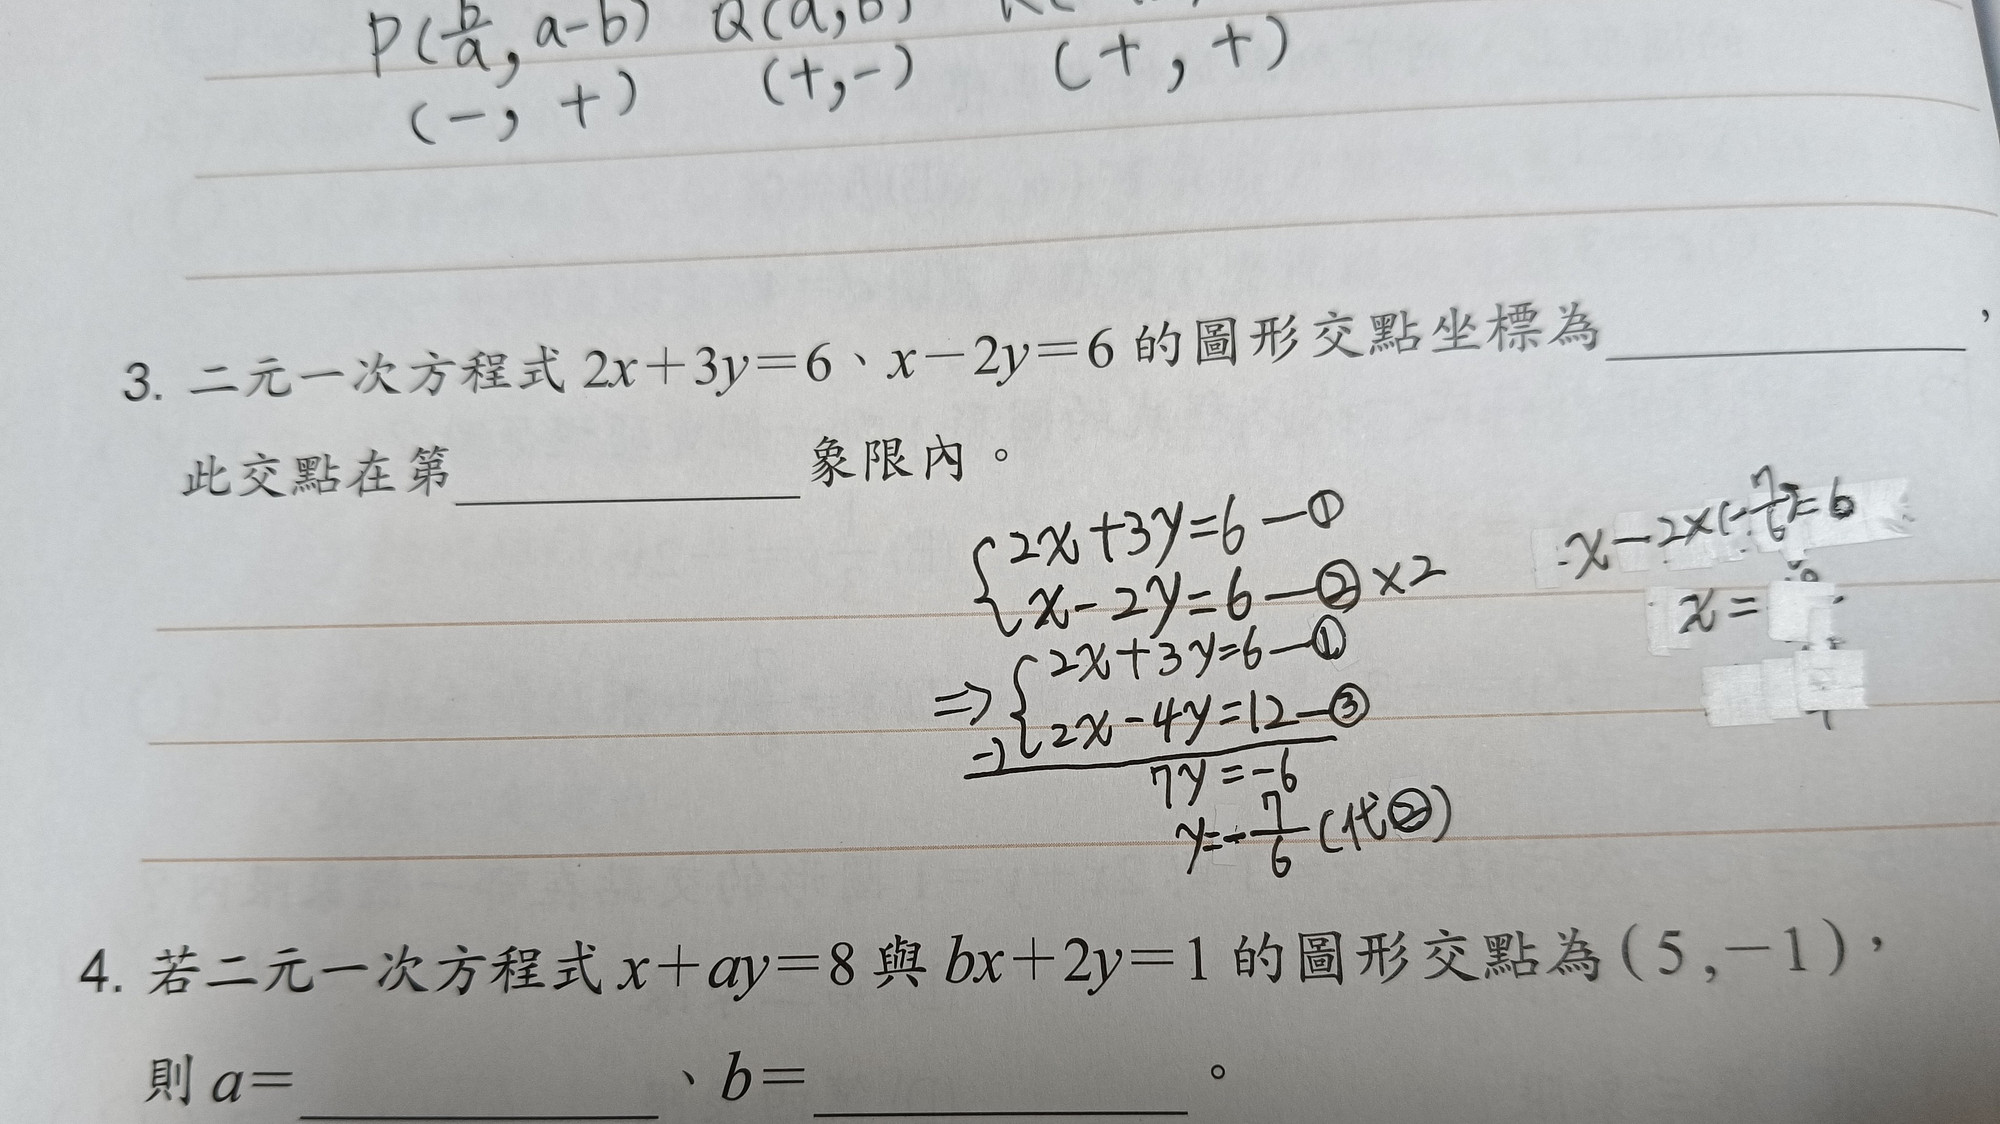 P(b/a, a-b) Q(a,b)
(-, +) (+,-) (+, +)
3. 二元一次方程式 2x+3y=6、x-2y=6 的圖形交點坐標為________,
此交點在第________象限內。
{2x+3y=6—①
x-2y=6—②×2
⇒{2x+3y=6—①
-) 2x-4y=12—③
7y=-6
y=-7/6 (代②)
x-2×(-7/6)=6
x=
4. 若二元一次方程式 x+ay=8 與 bx+2y=1 的圖形交點為(5,-1),
則 a=________、b=________。